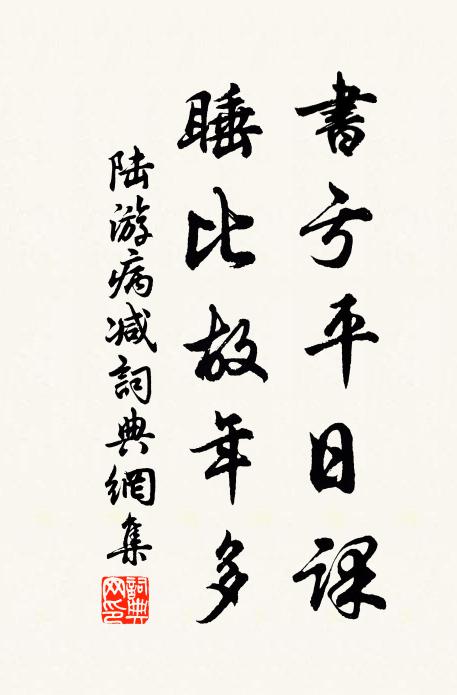 書亏平日課
睡比故年多
陆游病减詞典網集
詞典网印